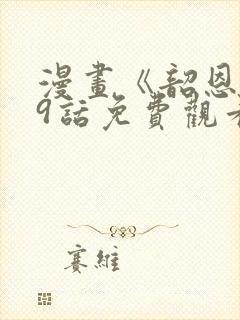 漫畫《韶恩
9話免費觀看
賽維